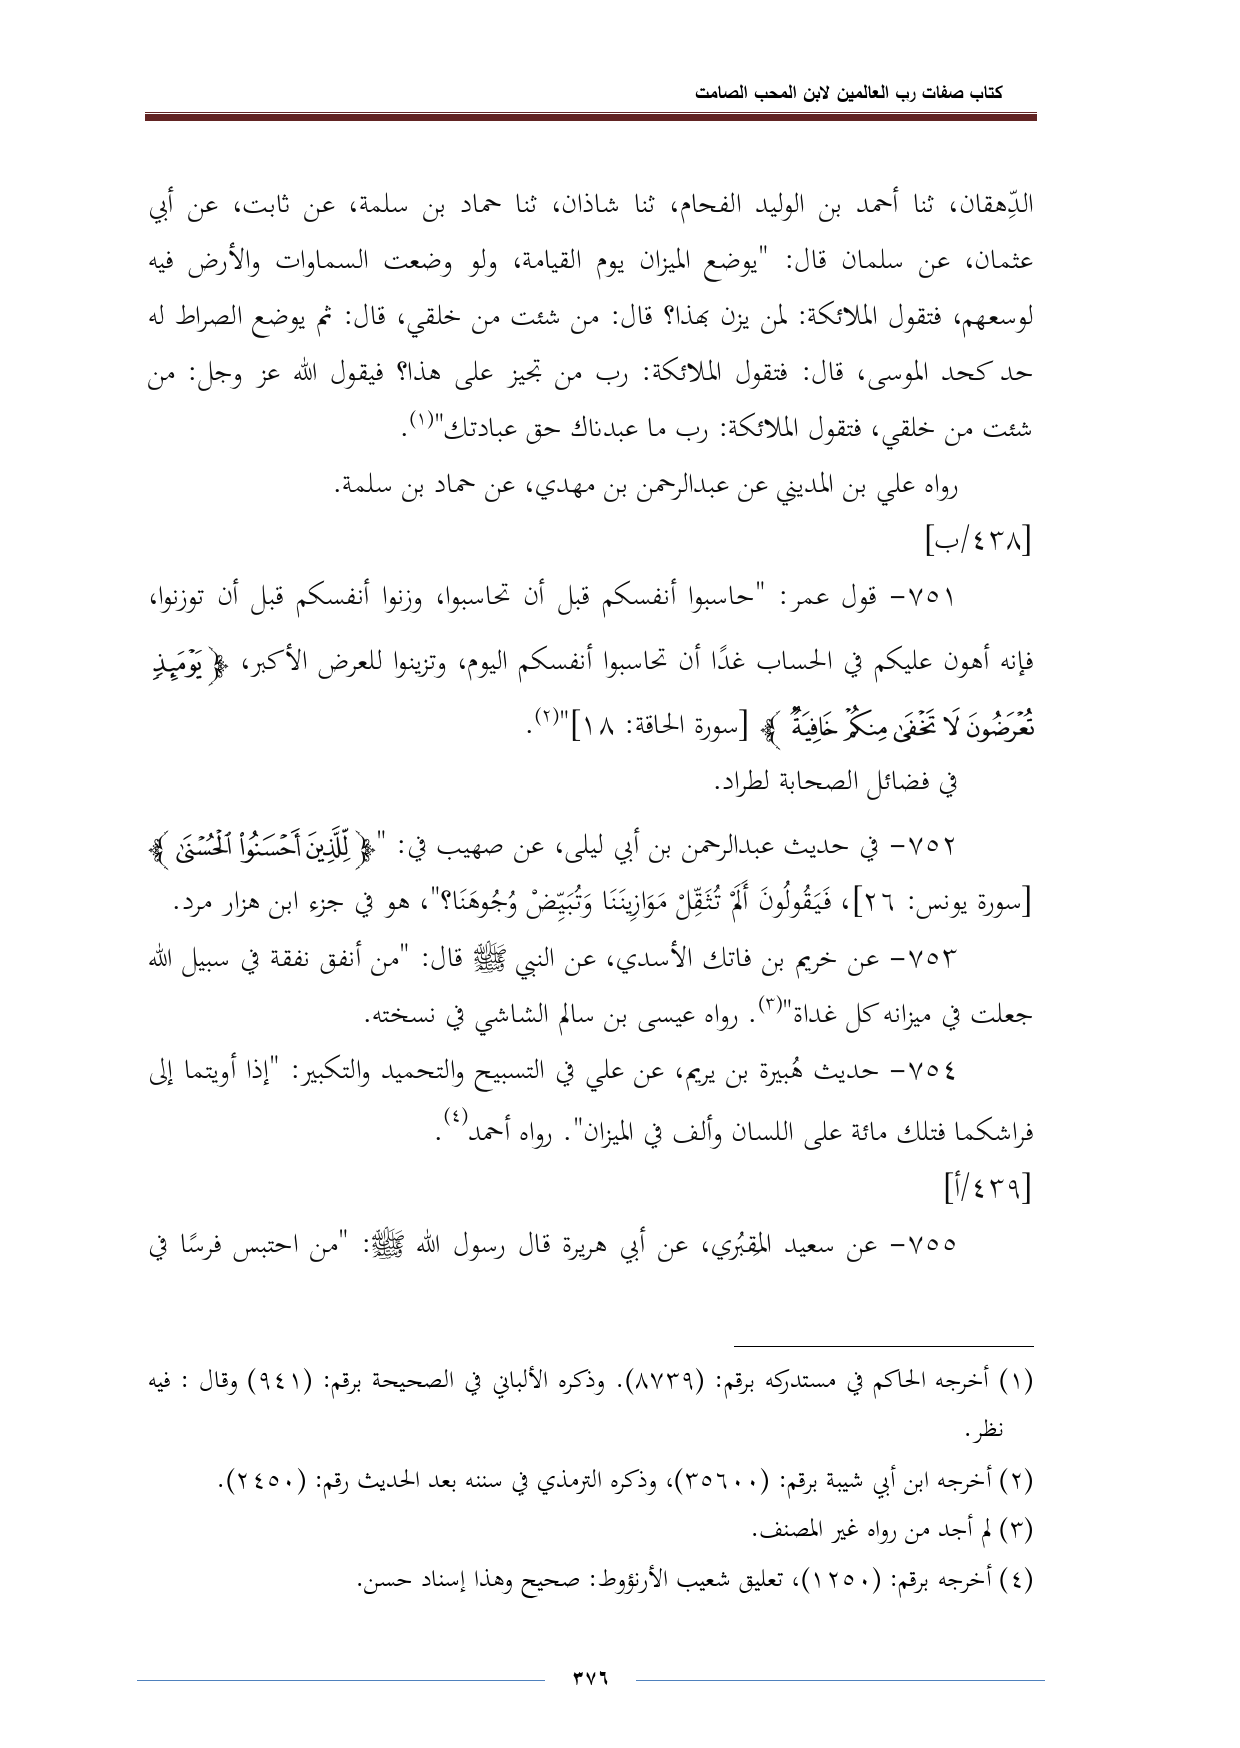 كتاب صفات رب العالمين لابن المحب الصامت
الدِّهقان، ثنا أحمد بن الوليد الفحام، ثنا شاذان، ثنا حماد بن سلمة، عن ثابت، عن أبي
عثمان، عن سلمان قال: "يوضع الميزان يوم القيامة، ولو وضعت السماوات والأرض فيه
لوسعهم، فتقول الملائكة: لمن يزن بهذا؟ قال: من شئت من خلقي، قال: ثم يوضع الصراط له
حد كحد الموسى، قال: فتقول الملائكة: رب من تجيز على هذا؟ فيقول الله عز وجل: من
شئت من خلقي، فتقول الملائكة: رب ما عبدناك حق عبادتك"(١).
رواه علي بن المديني عن عبدالرحمن بن مهدي، عن حماد بن سلمة.
[٤٣٨/ب]
٧٥١- قول عمر: "حاسبوا أنفسكم قبل أن تحاسبوا، وزنوا أنفسكم قبل أن توزنوا،
فإنه أهون عليكم في الحساب غدًا أن تحاسبوا أنفسكم اليوم، وتزينوا للعرض الأكبر، ﴿ يَوْمَئِذٍ
تُعْرَضُونَ لَا تَخْفَىٰ مِنكُمْ خَافِيَةٌ ﴾ [سورة الحاقة: ١٨]"(٢).
في فضائل الصحابة لطراد.
٧٥٢- في حديث عبدالرحمن بن أبي ليلى، عن صهيب في: "﴿ لِّلَّذِينَ أَحْسَنُوا۟ ٱلْحُسْنَىٰ ﴾
[سورة يونس: ٢٦]، فَيَقُولُونَ أَلَمْ تُثَقِّلْ مَوَازِينَنَا وَتُبَيِّضْ وُجُوهَنَا؟"، هو في جزء ابن هزار مرد.
٧٥٣- عن خريم بن فاتك الأسدي، عن النبي ﷺ قال: "من أنفق نفقة في سبيل الله
جعلت في ميزانه كل غداة"(٣). رواه عيسى بن سالم الشاشي في نسخته.
٧٥٤- حديث هُبيرة بن يريم، عن علي في التسبيح والتحميد والتكبير: "إذا أويتما إلى
فراشكما فتلك مائة على اللسان وألف في الميزان". رواه أحمد(٤).
[٤٣٩/أ]
٧٥٥- عن سعيد المِقبُري، عن أبي هريرة قال رسول الله ﷺ: "من احتبس فرسًا في
(١) أخرجه الحاكم في مستدركه برقم: (٨٧٣٩). وذكره الألباني في الصحيحة برقم: (٩٤١) وقال : فيه
نظر.
(٢) أخرجه ابن أبي شيبة برقم: (٣٥٦٠٠)، وذكره الترمذي في سننه بعد الحديث رقم: (٢٤٥٠).
(٣) لم أجد من رواه غير المصنف.
(٤) أخرجه برقم: (١٢٥٠)، تعليق شعيب الأرنؤوط: صحيح وهذا إسناد حسن.
٣٧٦